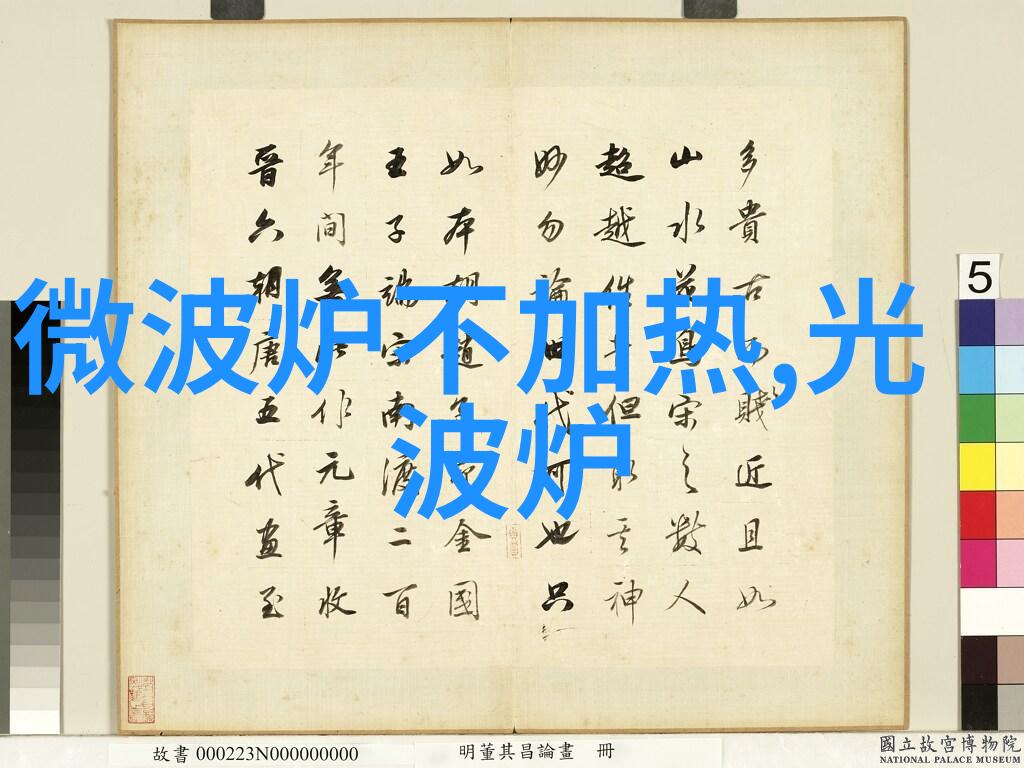 微波炉不加热,光
波炉
多貴古而賤近且如
山水花鳥宋之數人
超越往昔但取其神
妙勿論世代可也只
如本朝趙金國
王子端宋南渡二百
年間無此作元章收
晉六朝唐五代畫至
5
故書 000223N000000000
明董其昌論畫 冊
國立故宮博物院
NATIONAL PALACE MUSEUM